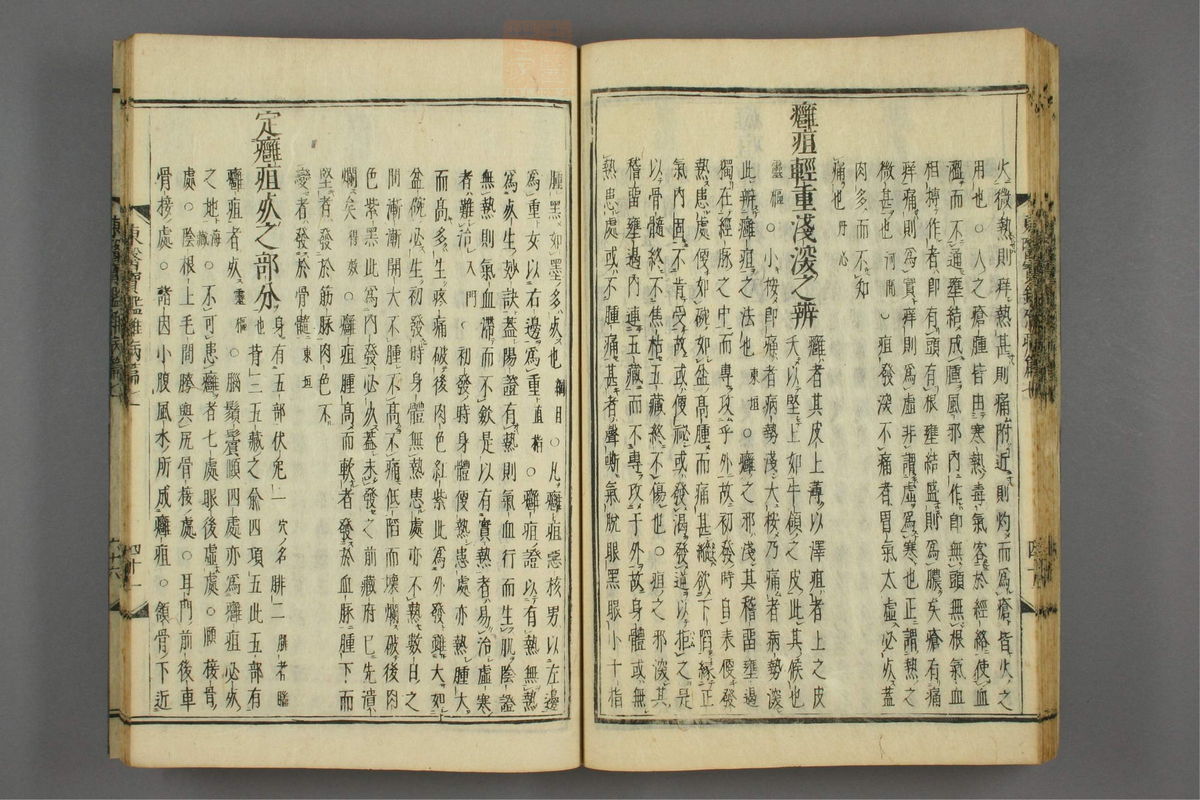 火微熱則痒熱甚則痛附近則灼而爲瘡皆火之
用也○人之瘡腫皆由寒熱毒氣客於經絡使血
濇而不通壅結成腫風邪內作即無頭無根氣血
相搏作者即有頭有根壅結盛則爲膿矣瘡有痛
痒痛則爲實痒則爲虛非謂虛爲寒也正謂熱之
微甚也 河間 ○疽發深不痛者胃氣太虛必死蓋
肉多而不知
痛也 丹心
癰疽輕重淺深之辨 癰者其皮上薄以澤疽者上之皮
夭以堅上如牛領之皮此其候也
靈樞 ○小按即痛者病勢淺大按乃痛者病勢深
此辨癰疽之法也 東垣 ○癰之邪淺其稽雷壅遏
獨在經脉之中而專攻乎外故初發時自表便發
熱患處便如碗如盆高腫而痛甚縱欲下陷緣正
氣內固不肯受故或便祕或發渴發逆以拒之是
以骨髓終不焦枯五藏終不傷也○疽之邪深其
稽雷壅遏內連五藏而不專攻于外故身體或無
熱患處或不腫痛甚者聲嘶氣脫眼黑眼小十指
腫黑如墨多死也 綱目 ○凡癰疽惡核男以左邊
爲重女以右邊爲重 直指 ○癰疽證以有熱無熱
爲死生妙訣蓋陽證有熱則氣血行而生肌陰證
無熱則氣血滯而不斂是以有實熱者易冷虛寒
者難冷 入門 ○初發時身體便熱患處亦熱腫大
而高多生疼痛破後肉色紅紫此爲外發雖大如
盆碗必生初發時身體無熱患處亦不熱數日之
間漸漸開大不腫不高不痛低陷而壞爛破後肉
色紫黑此爲內發必死蓋未發之前藏府已先潰
爛矣 得效 ○癰疽腫高而軟者發於血脉腫下而
堅者發於筋脉肉色不
變者發於骨髓 東垣
定癰疽死之部分 身有五部伏兔一 穴名 腓二 腨者腨
也 背三五藏之兪四項五此五部有
癰疽者死 靈樞 ○腦鬚鬢頤四處亦爲癰疽必死
之地 海藏 ○不可患癰者七處眼後虛處○頤接骨
處○陰根上毛間胯與尻骨接處○耳門前後車
骨接處○諸因小腹風水所成癰疽○頷骨下近
東醫寶鑑雜病篇
四十一